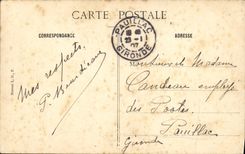 CARTE POSTALE
CORRESPONDANCE
ADRESSE
PAUILLAC
23 - 1
07
GIRONDE
Mes respects
P.
Monsieur et Madame
Candeau employé
des Postes
Pauillac
Gironde